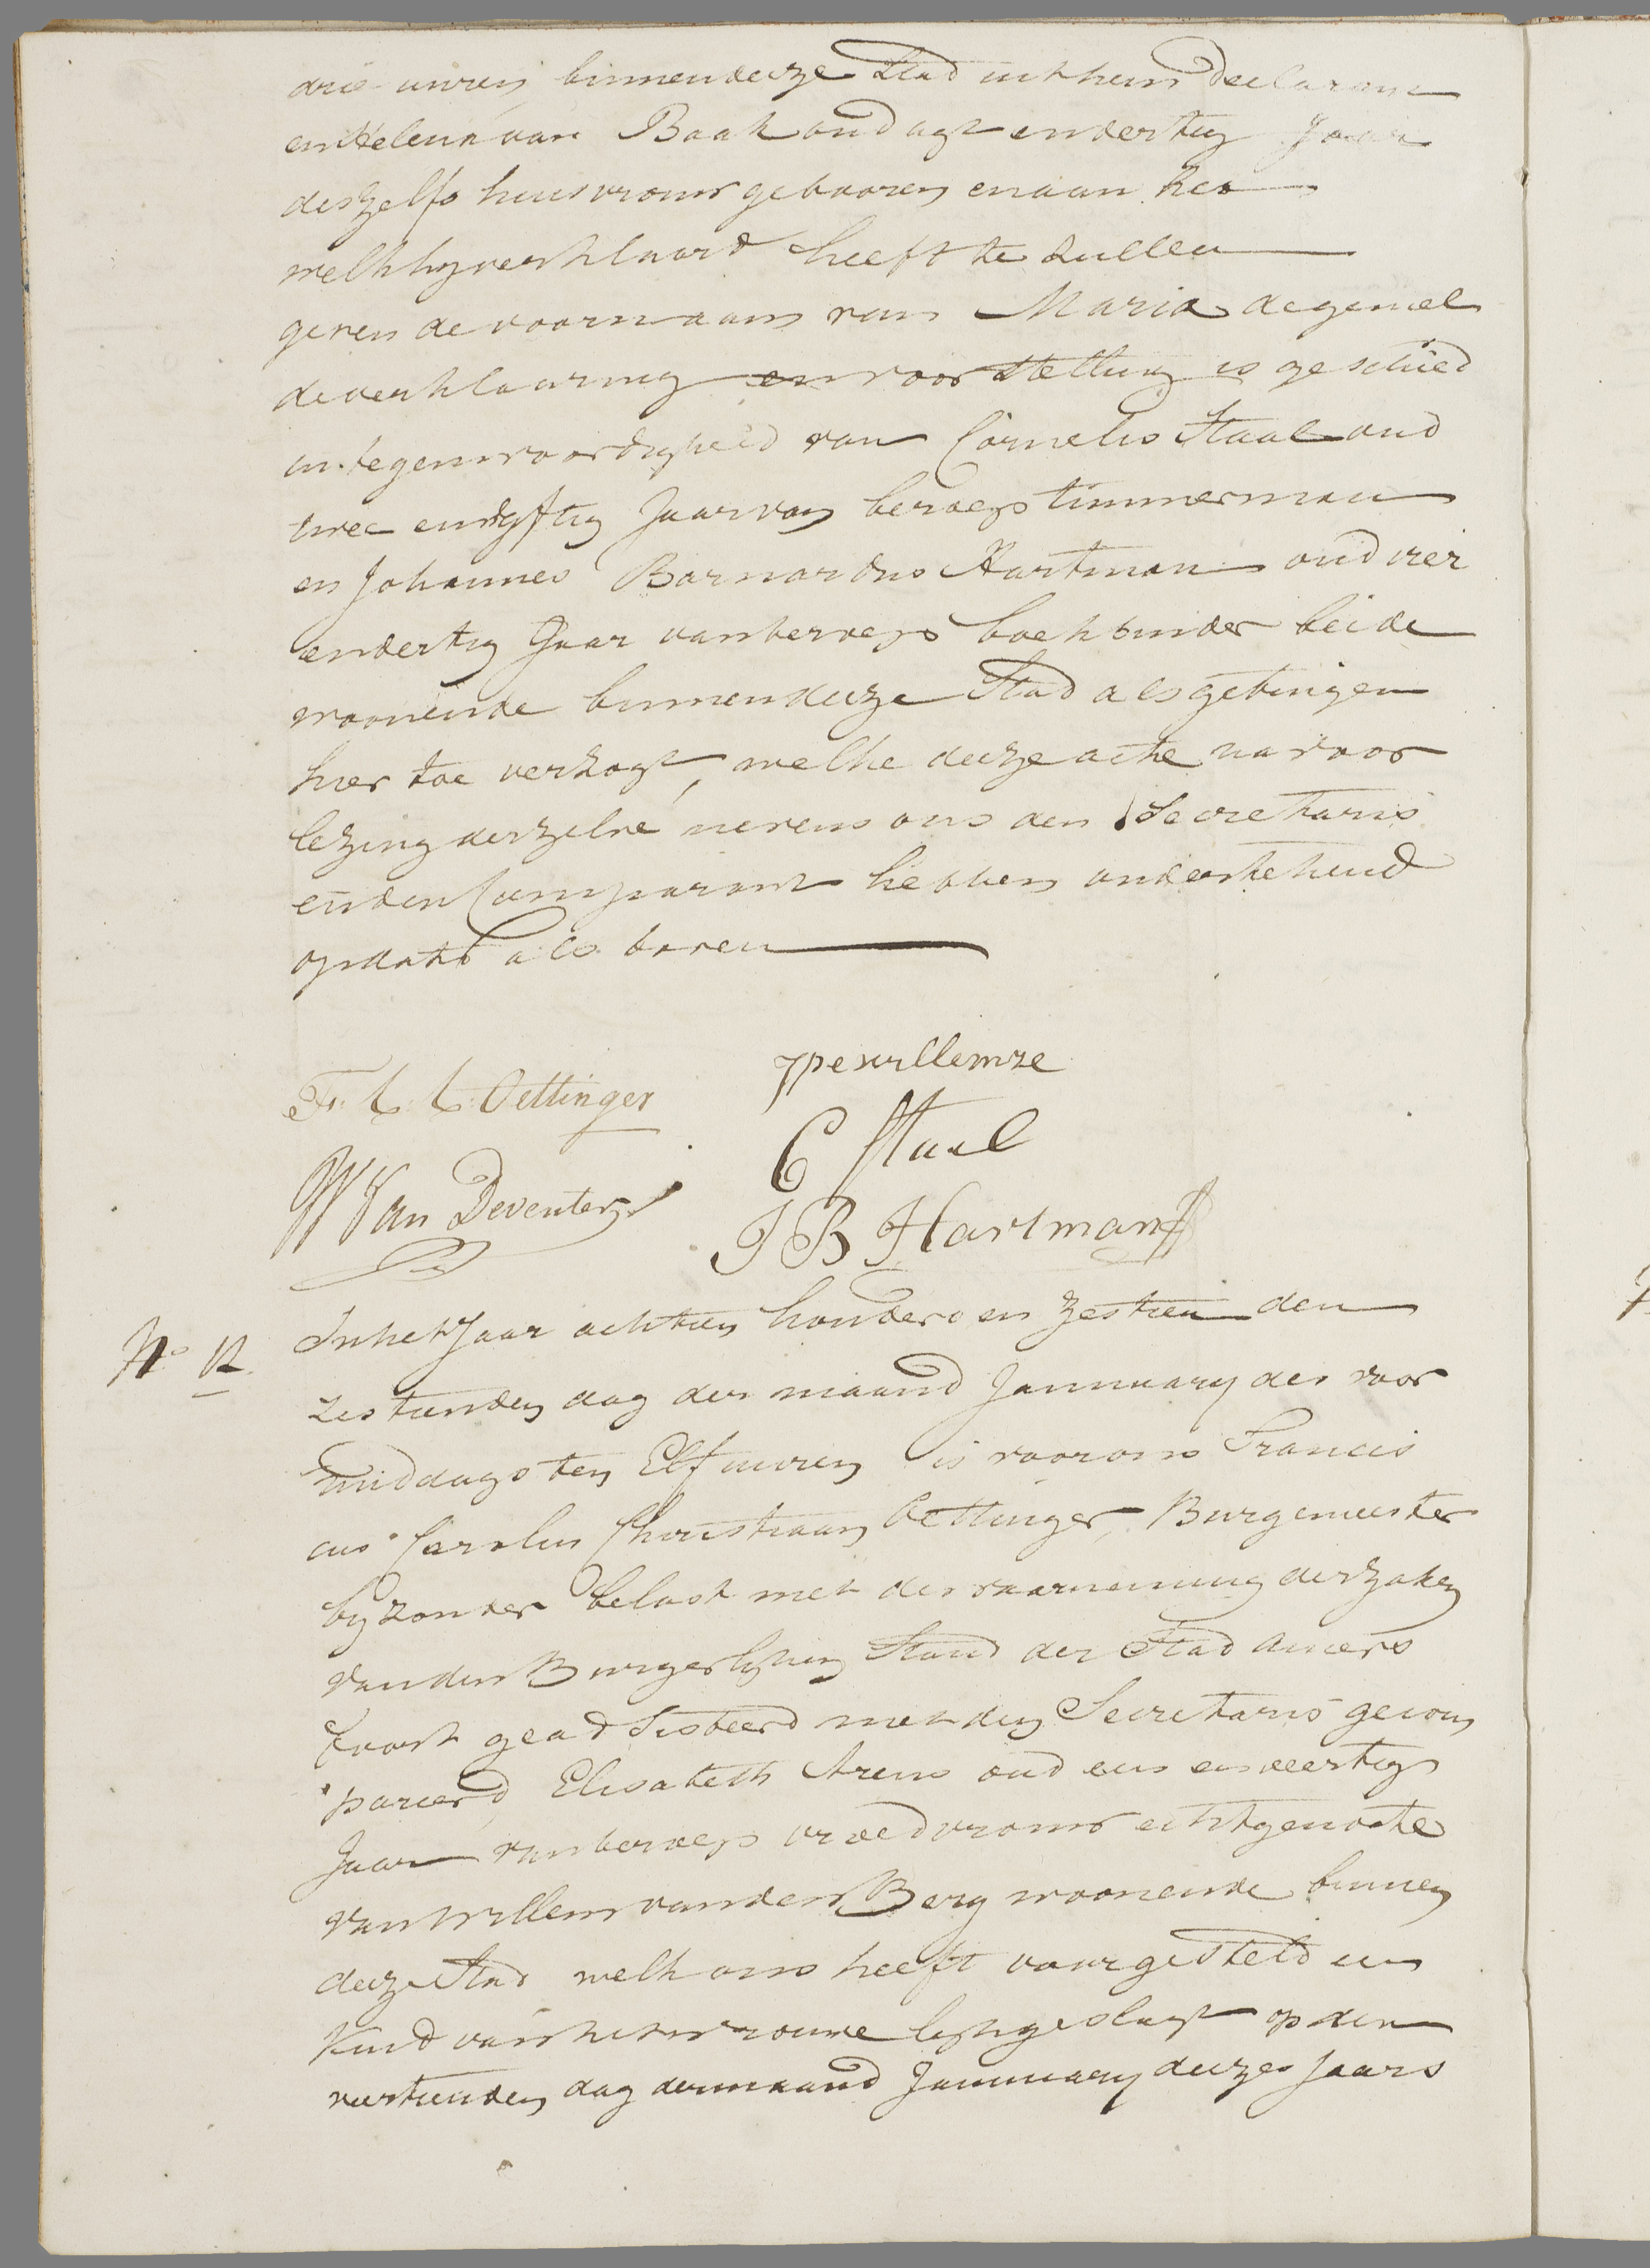 drie uuren binnen deeze Stad uit hem declarant
en Helena van Baak oud agt en dertig Jaar
deszelfs huisvrouw gebooren en aan het
welk hy verklaard heeft te zullen
geven de voornaam van Maria de gemel
de verklaaring en voorstelling is geschied
in tegenwoordigheid van Cornelis Staal oud
twee en vyftig Jaar van beroep timmerman
en Johannes Barnardus Hartman oud vier
en dertig Jaar van beroep boekbinder beide
woonende binnen deeze Stad als getuigen
hier toe verzogt, welke deeze acte na voor
lezing derzelve nevens ons den Secretaris
en den Comparant hebben onderteekend
op dato als boven
F. C. C. Oettinger
jpewillemze
C Staal
W Van Deventer
J B Hartman
No 12
In het Jaar achtien honderd en zestien den
zestienden dag der maand January des voor
middags ten Elf uuren is voor ons Francis
cus Carolus Christiaan Oettinger, Burgemeester
byzonder belast met de waarneming der zaken
van den Burgerlyken Stand der Stad Amers
foort geadsisteerd met den Secretaris gecom
pareerd Elisabeth Arens oud een en veertig
Jaar van beroep vroedvrouw echtgenoote
van Willem van den Berg woonende binnen
deeze Stad welk ons heeft voorgesteld een
Kind van het vrouwelyk geslagt op den
veertienden dag der maand January deezes Jaars